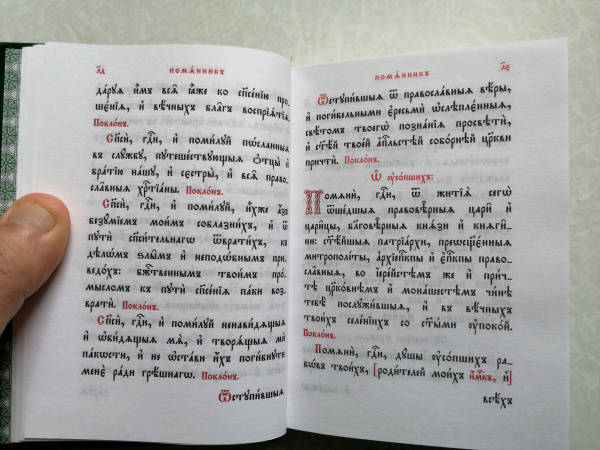 л҃д
помѧ́нникъ
да́руѧ и҆̀мъ всѧ̑ ꙗ҆̀же ко спⷭ҇е́нїю про-
ше́нїѧ, и҆ вѣ́чныхъ бла̑гъ воспрїѧ̑тїѧ.
Покло́нъ.
Спⷭ҇и́, гдⷭ҇и, и҆ поми́луй пѡ́сланныѧ
въ слꙋ́жбꙋ, пꙋтеше́ствꙋющыѧ ѻ҆тцы̀ и҆
бра́тїю на́шꙋ, и҆ сє́стры, и҆ всѧ̑ право-
сла̑вныѧ хрⷭ҇тїа́ны. Покло́нъ.
Спⷭ҇и́, гдⷭ҇и, и҆ поми́луй, и҆̀хже а҆́зъ
безꙋ́мїемъ мои́мъ соблазни́хъ, и҆ ѿ
пꙋтѝ сп҃си́тельнагѡ ѿврати́хъ, къ
дѣлѡ́мъ ѕлы̑мъ и҆ неподѡ́бнымъ при-
ведо́хъ: бжⷭ҇твеннымъ твои́мъ про́-
мысломъ къ пꙋтѝ спⷭ҇е́нїѧ па́ки воз-
вратѝ. Покло́нъ.
Спⷭ҇и́, гдⷭ҇и, и҆ поми́луй ненави́дѧщыѧ
и҆ ѡ҆би̑дѧщыѧ мѧ̀, и҆ творѧ́щыѧ мѝ
па̑кѡсти, и҆ не ѡ҆ста́ви и҆́хъ поги́бнꙋти
менє̀ ра́ди грѣ́шнагѡ. Покло́нъ.
Ѿстꙋпи́вшыѧ
л҃є
помѧ́нникъ
Ѿстꙋпи́вшыѧ ѿ правосла́вныѧ вѣ́ры,
и҆ поги́бельными є҆ресьмѝ ѡ҆слѣплє́нныѧ,
свѣ́томъ твоегѡ̀ позна́нїѧ просвѣтѝ,
и҆ ст҃ѣ́й твое́й а҆пⷭ҇льстѣй собо́рнѣй цр҃кви
причтѝ. Покло́нъ.
Ѡ҆ ᲂу҆со́пшихъ:
Помѧнѝ, гдⷭ҇и, ѿ житїѧ̀ сегѡ̀
ѿше́дшыѧ правовѣ̑рныѧ цари̑ и҆
цари̑цы, бл҃говѣ̑рныѧ кнѧ̑зи и҆ кнѧги̑-
ни: ст҃ѣ́йшыѧ патрїа́рхи, преѡсщ҃є́нныѧ
митрополі́ты, а҆рхїепⷭ҇кпы и҆ є҆пⷭ҇кпы право-
сла̑вныѧ, во і҆ере́йстѣмъ же и҆ при́ч-
тѣ цр҃ко́внѣмъ и҆ мона́шестѣмъ чи́нѣ
тебѣ̀ послꙋжи́вшыѧ, и҆ въ вѣ́чныхъ
твои́хъ селе́нїихъ со ст҃ы́ми ᲂу҆поко́й.
Покло́нъ.
Помѧнѝ, гдⷭ҇и, дꙋ́шы ᲂу҆со́пшихъ ра̑-
бѡвъ твои́хъ, [роди́телей мои́хъ и҆́м҃къ, и҆]
всѣ́хъ